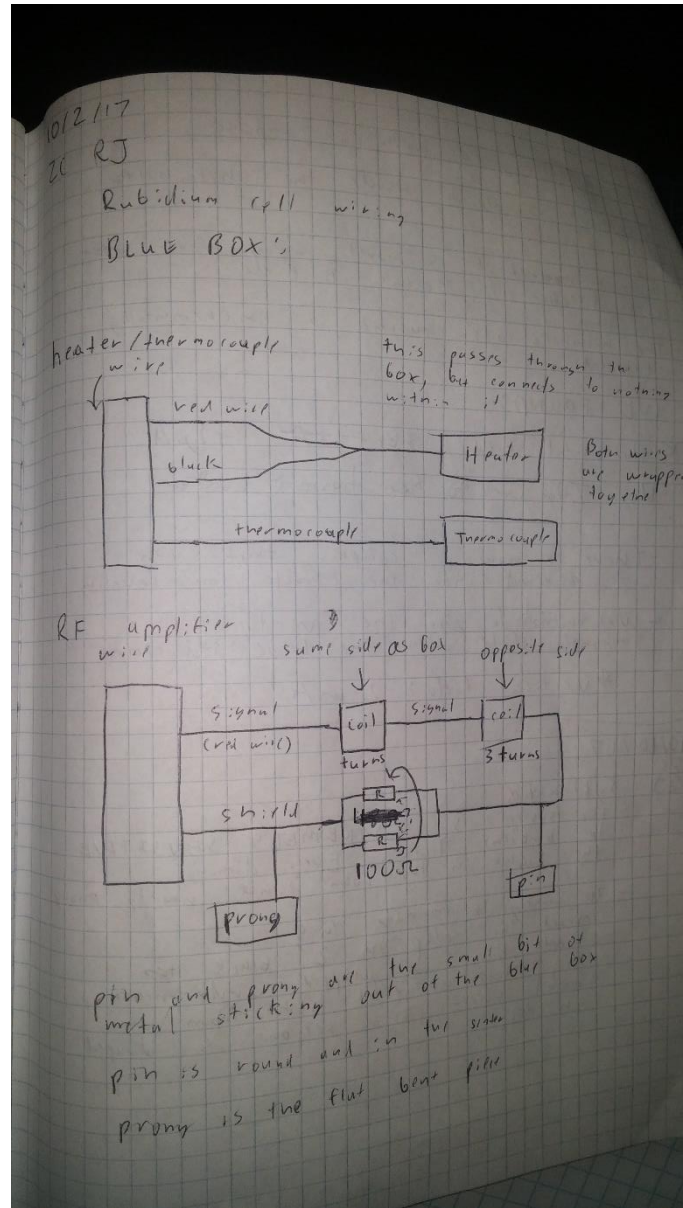 10/2/17
ZC RJ
Rubidium cell wiring
BLUE BOX:
heater/thermocouple
wire
this passes through th
box, but connects to nothing
within it
red wire
black
Heater
Both wires
are wrappe
togethe
thermocouple
Thermocouple
RF amplifier
wire
same side as box
opposite side
signal
(red wire)
coil
signal
coil
turns
3 turns
shield
R
R
100Ω
prong
pin
pin and prong are the small bit of
metal sticking out of the blue box
pin is round and in the
prong is the flat bent piece